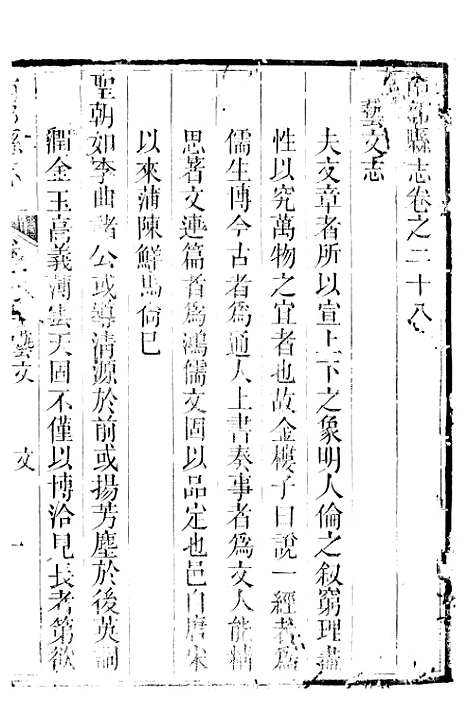 縣志卷之二十八
藝文志
夫文章者所以宣上下之象明人倫之敘窮理盡
性以究萬物之宜者也故金樓子曰說一經者為
儒生博今古者為通人上書奏事者為文人能精
思著文連篇者為鴻儒文固以品定也邑自唐宋
以來蒲陳鮮馬尚已
聖朝如李曲諸公或導清源於前或揚芳塵於後英詞
潤金玉高義薄雲天固不僅以博洽見長者第欲
藝文 文 一